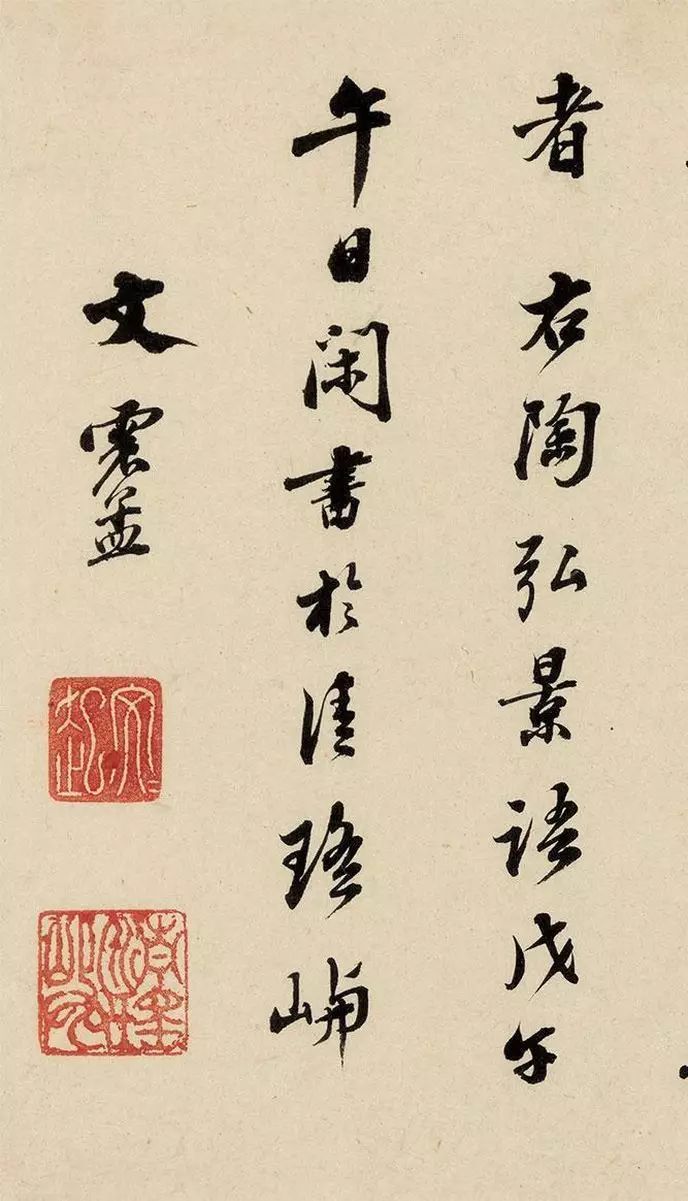 者 右陶弘景語戊午
午日閑書於清瑤嶼
文震孟
文起